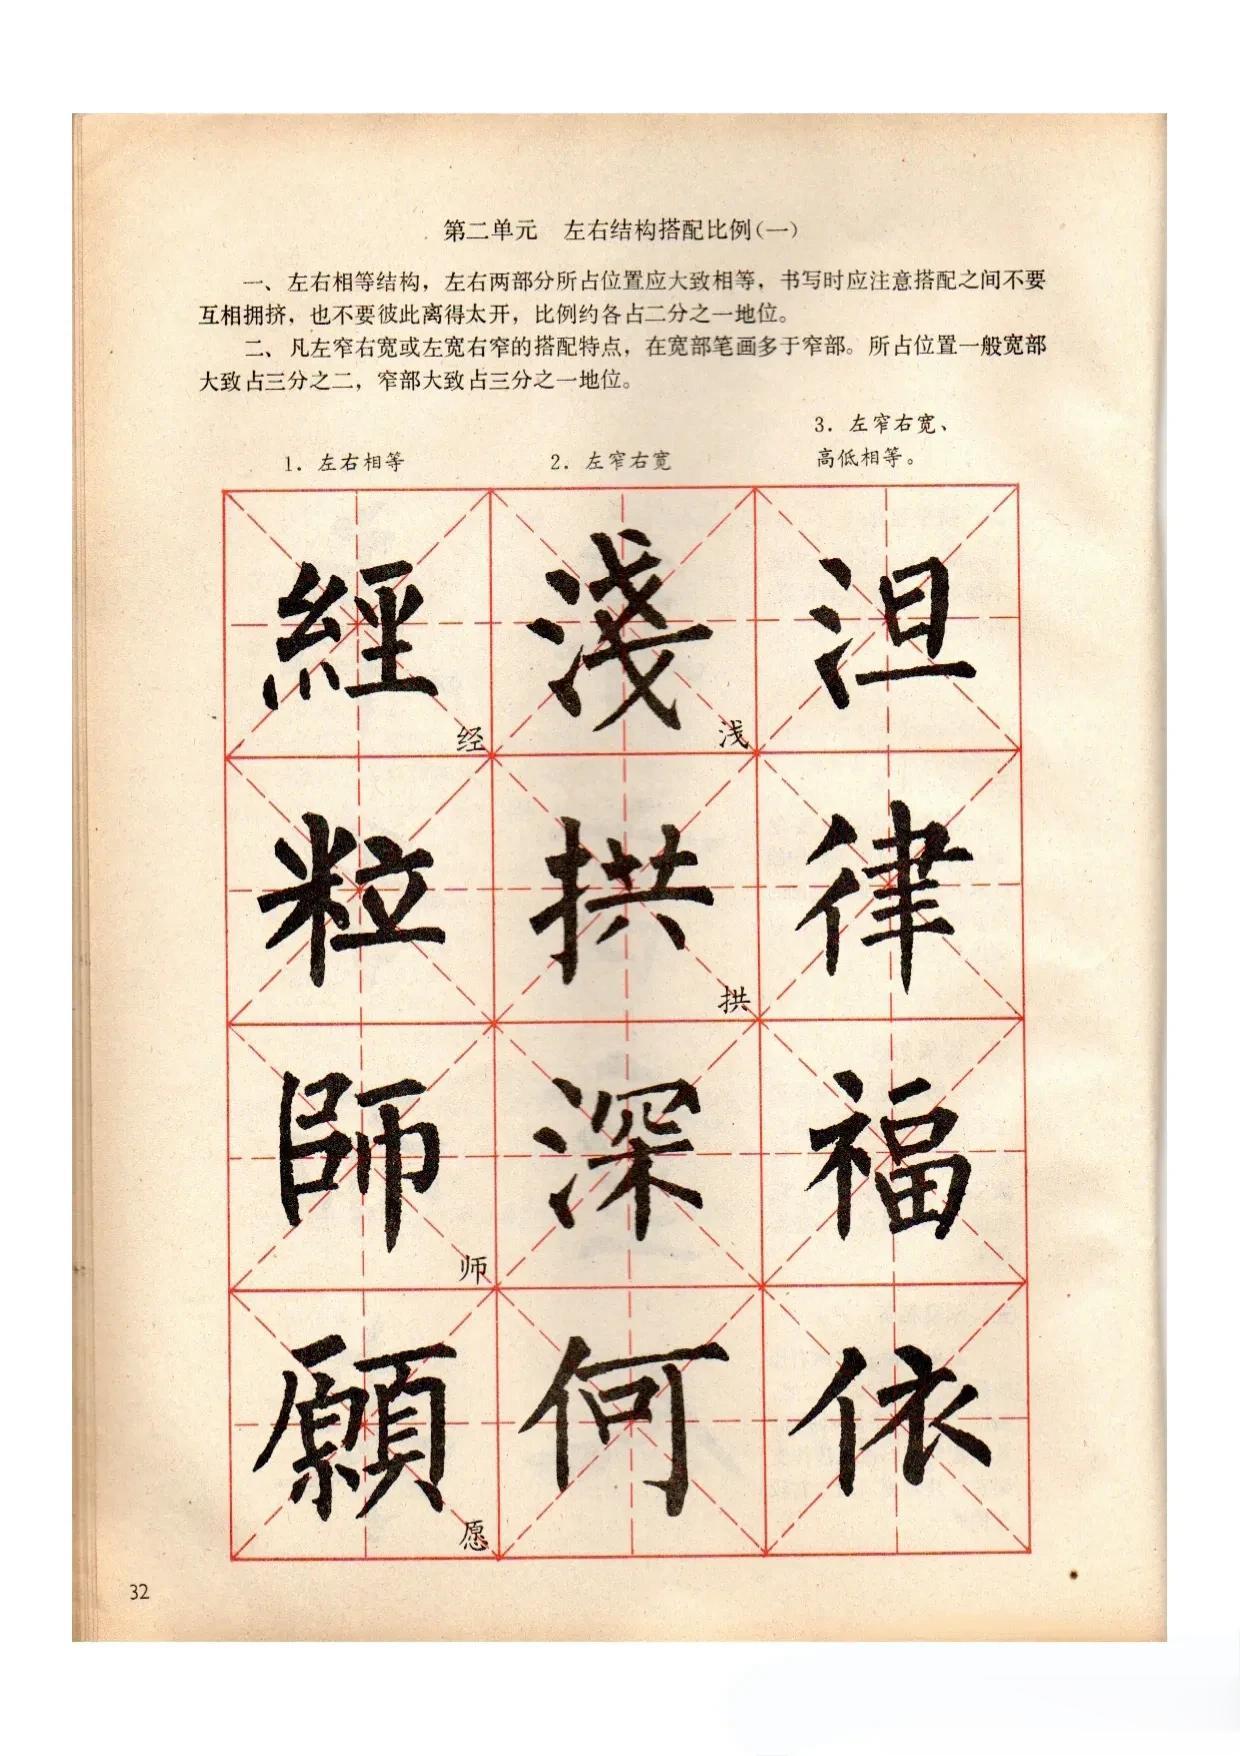 第二单元　左右结构搭配比例(一)
一、左右相等结构，左右两部分所占位置应大致相等，书写时应注意搭配之间不要
互相拥挤，也不要彼此离得太开，比例约各占二分之一地位。
二、凡左窄右宽或左宽右窄的搭配特点，在宽部笔画多于窄部。所占位置一般宽部
大致占三分之二，窄部大致占三分之一地位。
1．左右相等
2．左窄右宽
3．左窄右宽、
高低相等。
經 淺 沮
经 浅
粒 拱 律
拱
師 深 福
师
願 何 依
愿
32